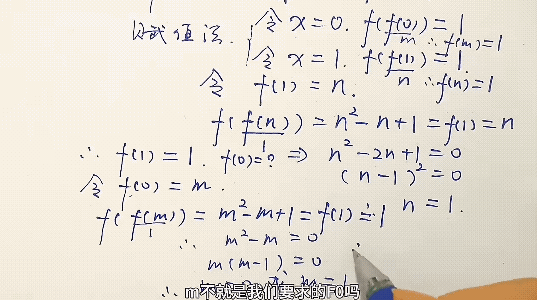 令 x=0. f(f(0))=1
m ∴f(m)=1
赋值法. 令 x=1. f(f(1))=1.
n ∴f(n)=1
令 f(1)=n.
f(f(n))=n²-n+1=f(1)=n
1
∴ f(1)=1. f(0)=? ⇒ n²-2n+1=0
(n-1)²=0
令 f(0)=m.
n=1.
f(f(m))=m²-m+1=f(1)=1
1
∴ m²-m=0
m(m-1)=0
m=1
m不就是我们要求的F0吗